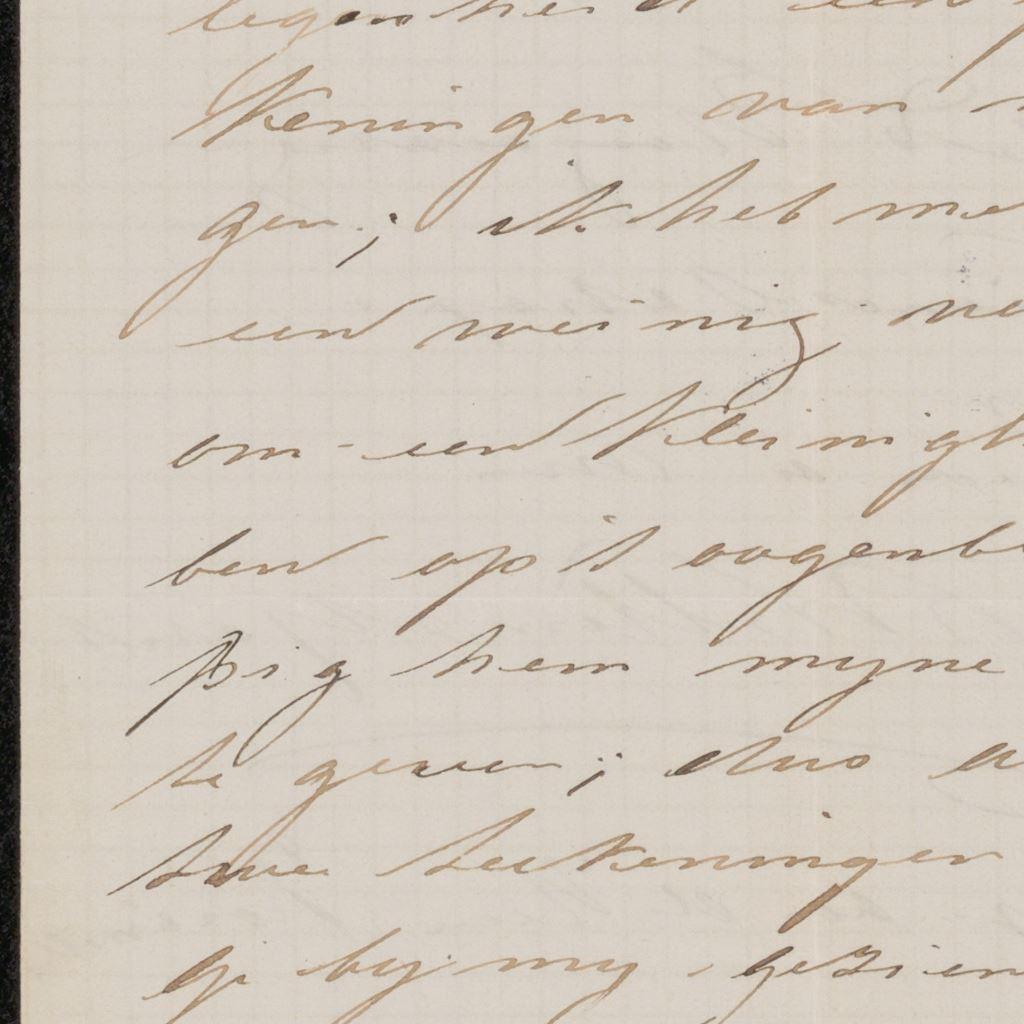 legenheid een
keningen van
gen; ik heb me
een weinig
om een kleinigh
ben op 't oogenbl
hem myne
te geven; dus
twee teekeningen
gy by my gezien